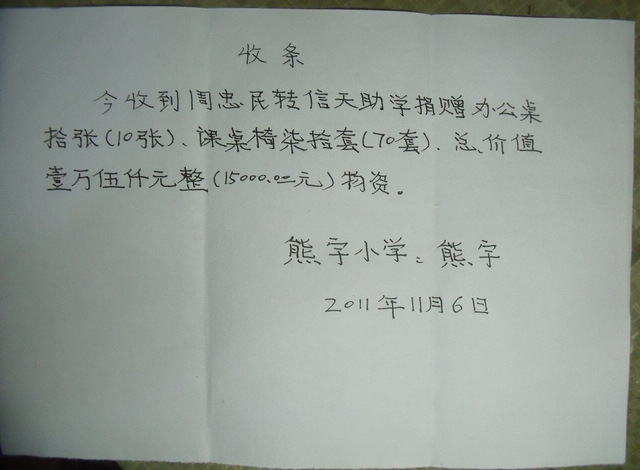 收条
今收到周忠民转信天助学捐赠办公桌
拾张(10张)、课桌椅柒拾套(70套).总价值
壹万伍仟元整(15000.00元)物资。
熊字小学:熊字
2011年11月6日